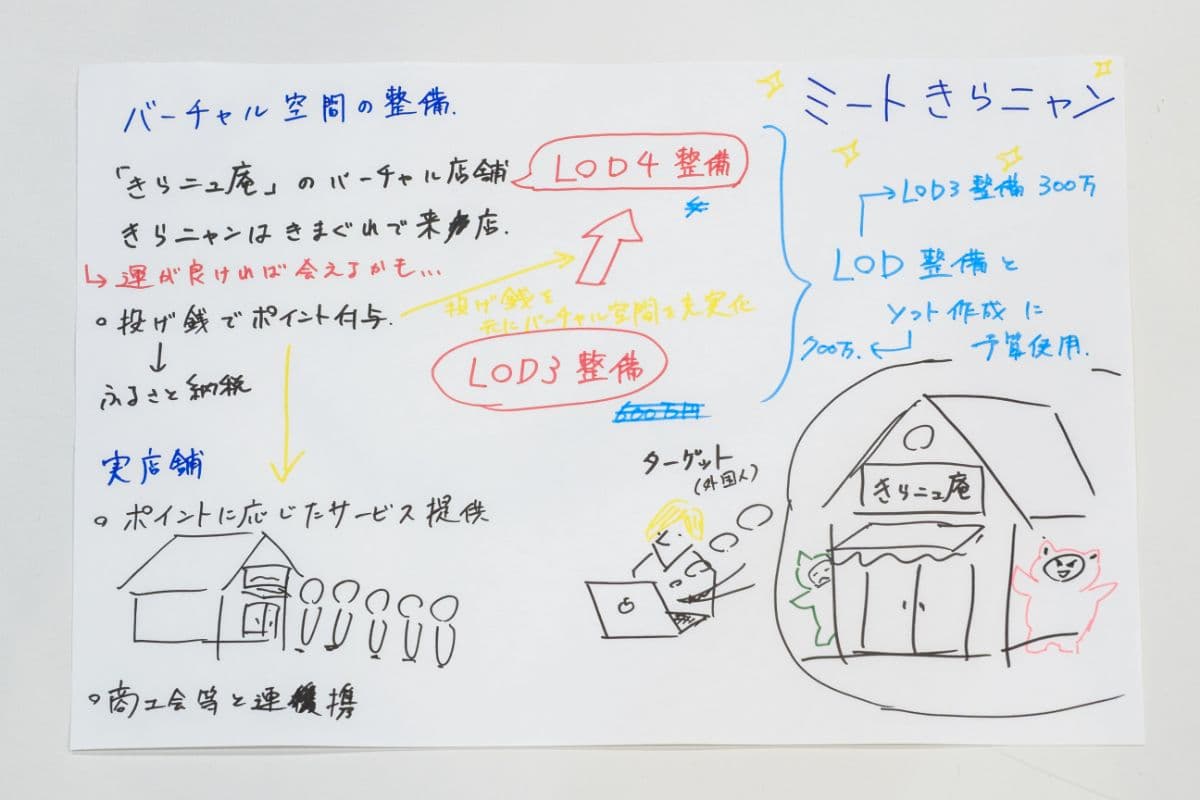 バーチャル空間の整備.
「きらニュ庵」のバーチャル店舗
LOD4整備
きらニャンはきまぐれで来店.
↳運が良ければ会えるかも...
○投げ銭でポイント付与.
↓
ふるさと納税
投げ銭を
元にバーチャル空間を充実化
LOD3整備
600万円
実店舗
○ポイントに応じたサービス提供
○商工会等と連携
ターゲット
(外国人)
ミートきらニャン
→LOD3整備 300万
LOD整備と
ソフト作成に
700万.←
予算使用.
きらニュ庵